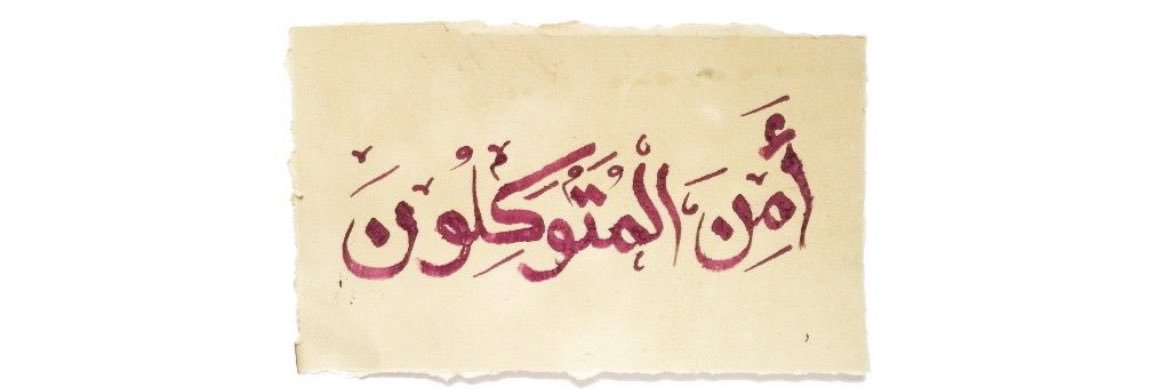 أَمِنَ الْمُتَوَكِّلُونَ